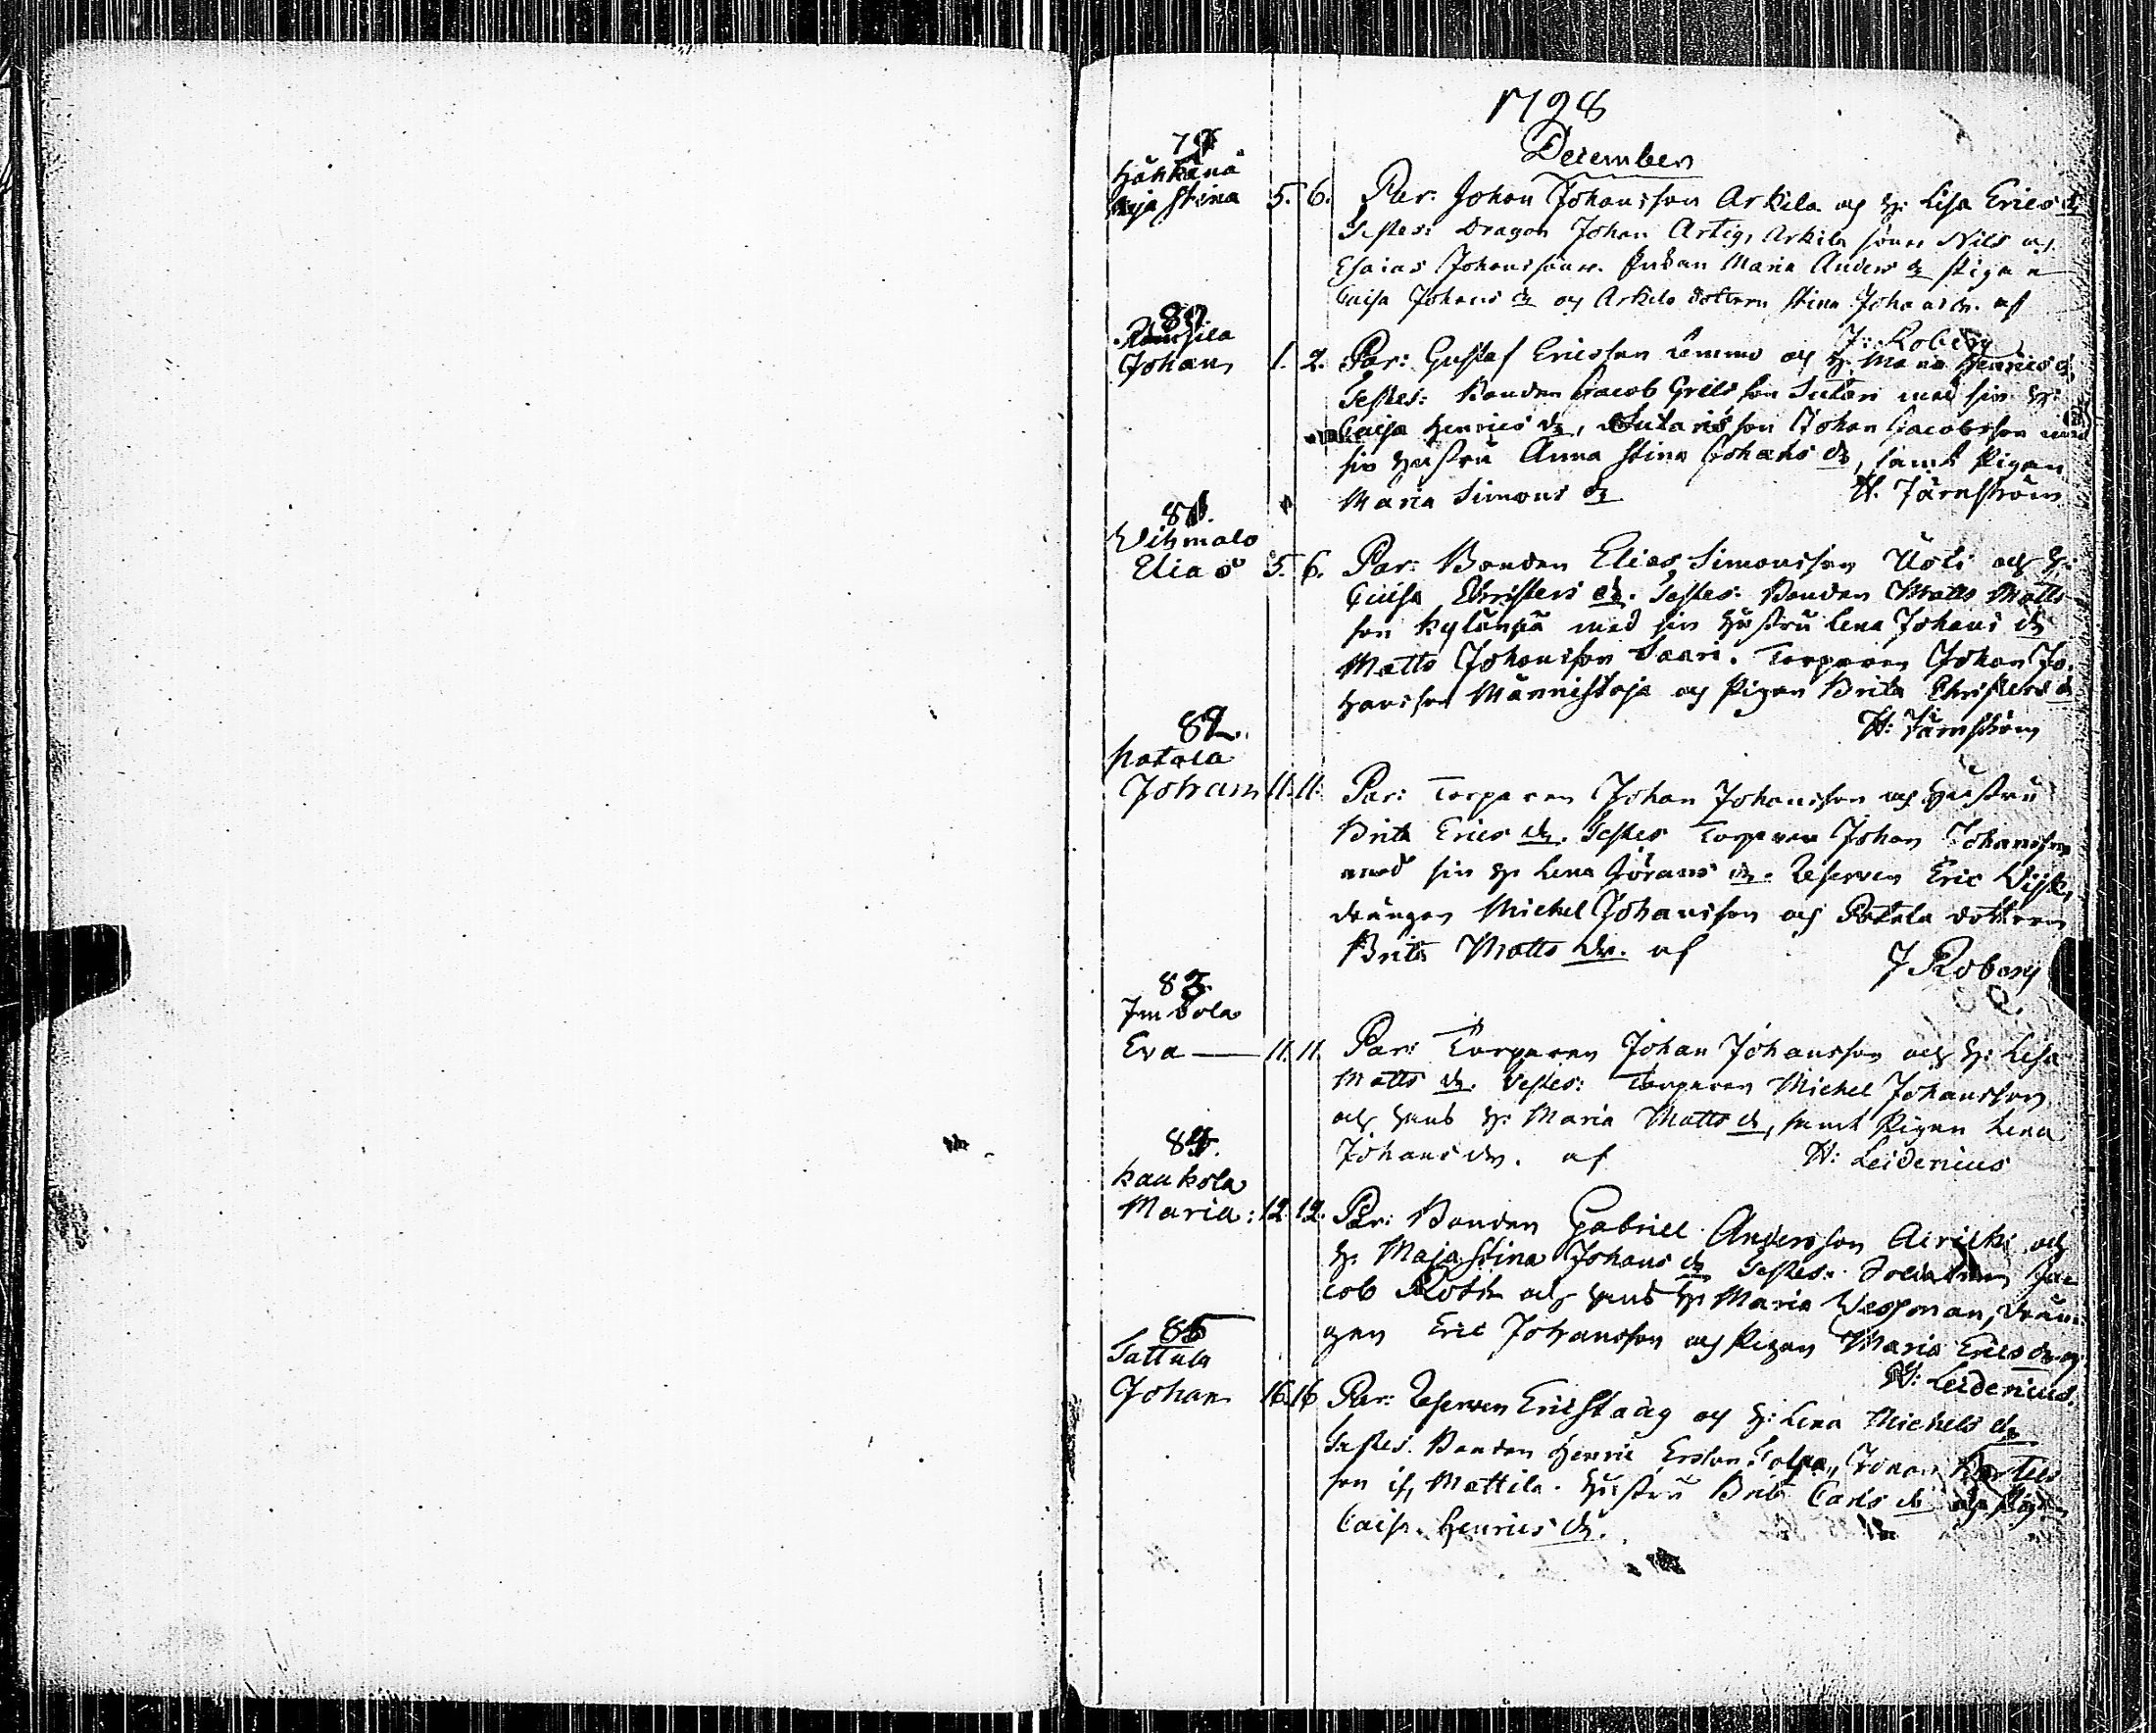 1798
December
79.
Håkkänä
Maja Stina 5. 6. Par: Johan Johansson Arkila och H: Lisa Erics dr
Testes: Dragon Johan Artig, Arkila söner Nils och
Esaias Johanssöner. Maria Anders dr Pigan
Caisa Johans dr och Arkila dottren Stina Johans dr. af
J: Roberg
80
Johan 1. 2. Par: Gustaf Ericsson Lemmo och H: Maria Henrics dr
Testes: Bonden Jacob Grelsson Sutari med sin H:
Caisa Henrics dr, Sutaris son Johan Jacobsson med
sin Hustru Anna Stina Johans dr, samt Pigan
Maria Simons dr H. Järnström
81.
Vihmalo
Elias 5. 6. Par: Bonden Elias Simonsson Uoti och H:
Caisa Christers dr. Testes: Bonden Matts Matts
son Kylänpä med sin Hustru Lena Johans dr
Matts Johansson Saari. Torparen Johan Jo-
hansson Männistoja och Pigan Brita Christers dr
H: Järnström
82.
Katala
Johan 11. 11. Par: Torparen Johan Johansson och Hustru
Brita Erics dr. Testes Torparen Johan Johansson
med sin H. Lena Jörans dr. Reserven Eric Visk,
drängen Michel Johansson och dottren
Brita Matts dr. af J Roberg
83.
Jutola
Eva — 11. 11. Par: Torparen Johan Johansson och H: Lisa
Matts dr. Testes: Torparen Michel Johansson
och hans H: Maria Matts dr, samt Pigan Lena
Johans dr. af H: Leidenius
84.
Kaukola
Maria: 12. 12. Par: Bonden Gabriel Andersson Airikki och
H. Maja Stina Johans dr Testes: Soldaten Ja-
cob Roth och hans H: Maria Wegman, drän-
gen Eric Johansson och Pigan Maria Erics dr af
H: Leidenius.
85
Sattula
Johan 16. 16 Par: Reserven Eric Staag och H: Lena Michels dr
Testes. Bonden Henric Ersson Tolpa, Johan Bertils
son if, Mattila. Hustru Brita Carls dr och Pigan
Caisa Henrics dr.